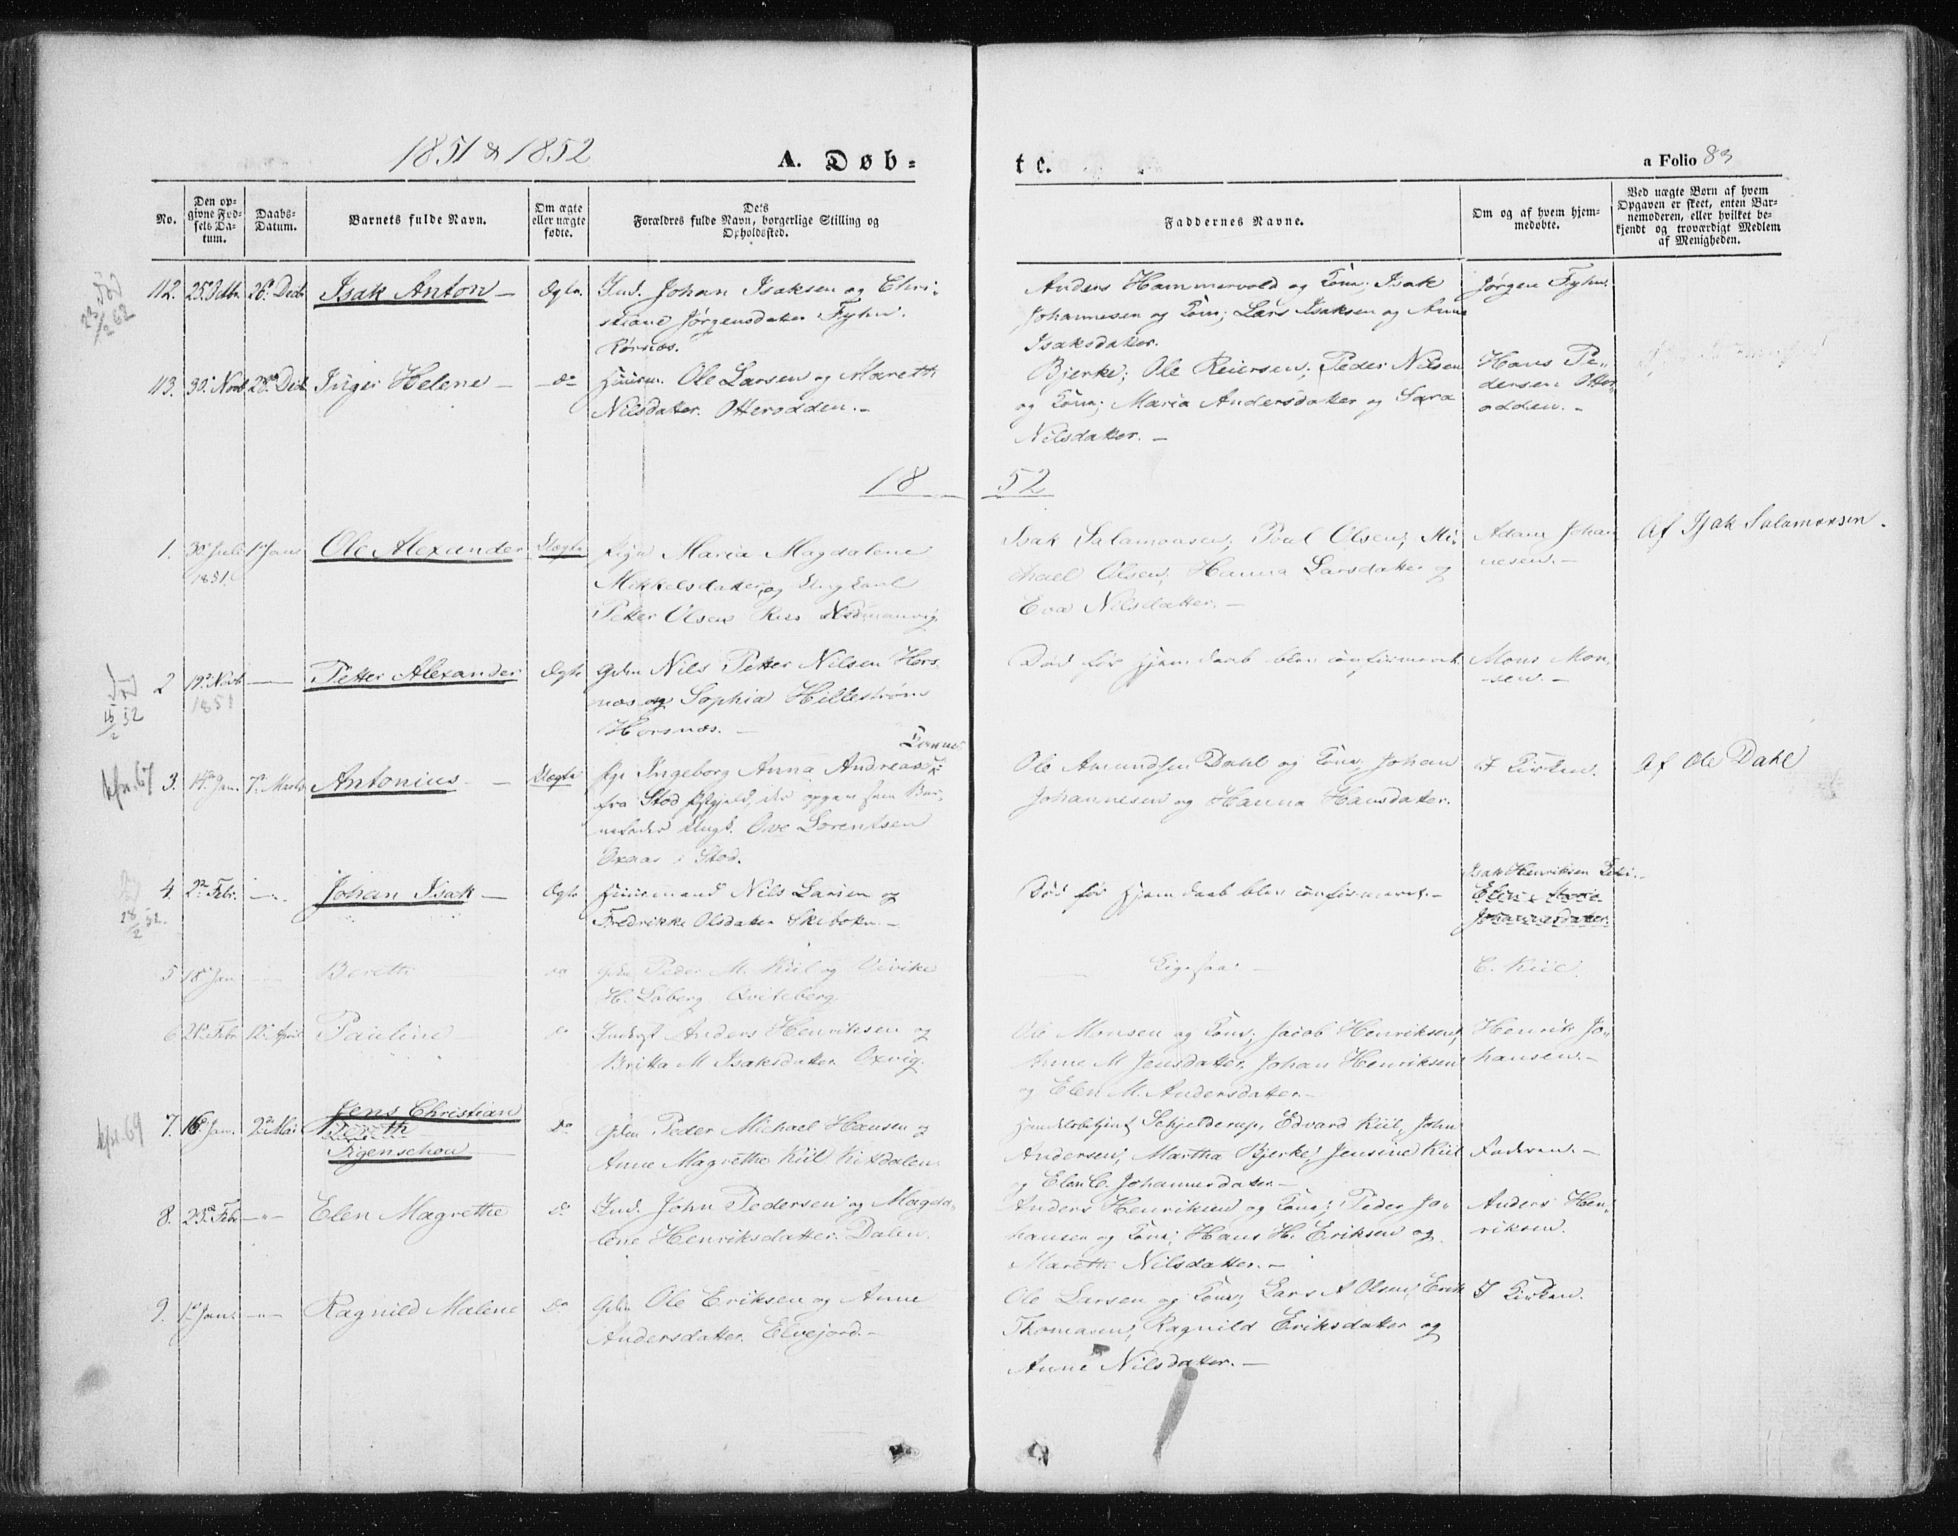 1851 & 1852
A. Døb-
te.
a Folio 83
No.
Den op-
givne Fød-
sels Da-
tum.
Daabs-
Datum.
Barnets fulde Navn.
Om ægte
eller uægte
fødte.
Dets
Forældres fulde Navn, borgerlige Stilling og
Opholdssted.
Faddernes Navne.
Om og af hvem hjem-
medøbte.
Ved uægte Børn af hvem
Opgaven er skeet, enten Bar-
nemoderen, eller hvilket be-
kjendt og troværdigt Medlem
af Menigheden.
112. 26 Decb Isak Anton — Ægte. Ind. Johan Isaksen og Chri-
stiane Jørgensdatter Fyhn.
Anders Hammervold og Kone; Isak
Johannesen og Kone; Lars Isaksen og Anne
Isaksdatter.
Jørgen Fyhn.
113. 30 Novb 28 Decb Inger Helene — do Huusm. Ole Larsen og Mareth
Nilsdatter. Otterodden. —
Bjerke; Ole Reiersen; Peder Nilsen
og Kone; Maria Andersdatter og Sara
Nilsdatter. —
Hans Pe-
dersen Otter-
odden. —
18 52
1. 30 Juli 1 Jan Ole Alexander Uægte Pige Maria Magdalene
1851.
Mikkelsdatter, og Ungkarl
Petter Olsen
Isak Salamonsen; Poul Olsen; Mi-
chael Olsen; Hanna Larsdatter og
Eva Nilsdatter. —
Adam Johan
nesen. —
Af Isak Salamonsen.
2 19 Novb — Petter Alexander Ægte Gdm Nils Petter Nilsen Hors-
1851
næs og Sophia Hillestrøm
Horsnæs. —
Død før Hjemdaab blev confirmeret.
Mons Mon-
sen. —
3. 14 Jan. 7 Marts Antonius — Uægte Pige Ingeborg Anna Andreasd.
fra Stod Præstgjeld, der opgav som Bar-
nefader Ungk. Ove Lorentsen
i Stod.
Ole Amundsen Dahl og Kone, Johan
Johannesen og Hanna Hansdatter.
I Kirken.
Af Ole Dahl
4. 2 Febr. — Johan Isak — Ægte Huusmand Nils Larsen og
Fredrikke Olsdatter Skibotn. —
Død før Hjemdaab blev confirmeret. —
Isak Henriksen
Johannesdatter.
5 18 Jan — Berethe do Gdm Peder M. Kiil og
H. Løberg. Qviteberg.
Ligesaa —
C. Kiil.
6 21 Febr 12 April Pauline — do Indst Anders Henriksen og
Britta M Isaksdatter. Oxvig.
Ole Monsen og Kone; Jacob Henriksen;
Anne M Jensdatter, Johan Henriksen
og Elen M. Andersdatter. —
Henrik Jo-
hansen. —
7. 16 Jan. 2 Mai Jens Christian
Figenschou
do Gdm Peder Michael Hansen og
Anne Magrethe Kiil Kitdalen
Handelsbetjent Schjelderup, Edvard Kiil, John
Andersen; Martha Bjerke; Jensine Kiil
og Elen C. Johannesdatter. —
Faderen. —
8. 23 Febr —"— Elen Magrethe do Ind. John Pedersen og Magda-
lene Henriksdatter. Dalen.
Anders Henriksen og Kone; Peder Jo-
hansen og Kone; Hans H. Eriksen og
Mareth Nilsdatter. —
Anders Hen-
riksen.
9. 1 Jan. —"— Ragnild Malene do Gdm Ole Eriksen og Anne
Andersdatter. Elvejord. —
Ole Larsen og Kone; Lars A Olsen; Erik
Thomasen; Ragnild Eriksdatter og
Anne Nilsdatter. —
I Kirken.